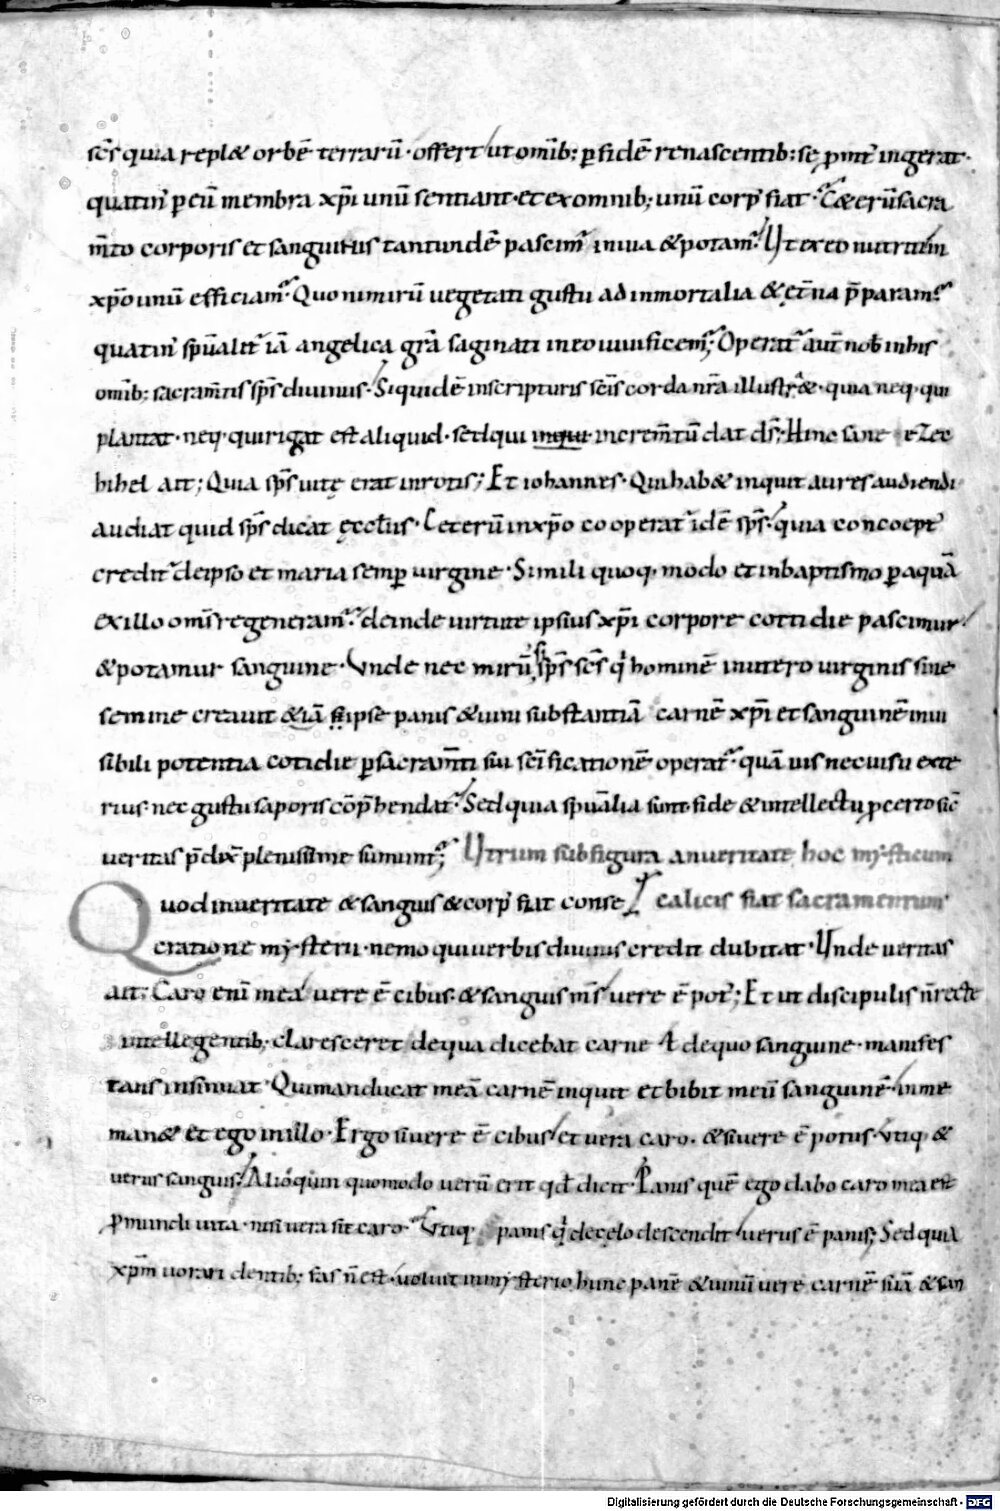 scs̄ quia repl& orbē terrarū · offert ut omīb: ꝑ fidē renascentib: se ꝓmt̄ ingerat ·
quatin' ꝑ eū membra xp̄i unū sentiant · et ex omnib; unū corp' fiat · C&erū sacra
m̄to corporis et sanguinis tantundē pascim' in uia & potam' · Ut ex eo nutriti in
xp̄o unū efficiam' · Quo nimirū uegetati gustu ad inmortalia & et̄na p̄param'
quatin' sp̄ualit̄ iā angelica gr̄a saginati in eo uiuificem'; Operat' aut̄ nob in his
omīb: sacram̄tis sp̄s diuinus · Siquidē in scripturis sc̄is corda nr̄a illustr& · quia neq · qui
plantat · neq · qui rigat est aliquid · sed qui inqui increm̄tū dat ds̄; Hinc sane eZec
hihel ait; Quia sp̄s uitę erat in rotis; Et iohannes · Qui hab& inquit aures audiendi
audiat quid sp̄s dicat ęccl̄iis · Ceterū in xp̄o cooperat' idē sp̄s · quia concoept'
credit' de ipso et maria semꝑ uirgine · Simili quoq · modo et in baptismo ꝑ aquā
ex illo om̄s regeneram' · deinde uirtute ipsius xp̄i corpore cottidie pascimur
& potamur sanguine · Unde nec mirū si sp̄s sc̄s q̇ hominē in utero uirginis sine
semine creauit & iā ipse panis & uini substantiā carnē xp̄i et sanguinē inui
sibili potentia cotidie ꝑ sacram̄ti sui sc̄ificationē operat' · quāuis nec uisu exte
rius · nec gustu saporis cōp̄hendat' · Sed quia sp̄ualia sunt · fide & intellectu ꝓ certo sic̄
ueritas p̄dix̄ plenissime sumunt'; Utrum sub figura an ueritate hoc mysticum
Quod in ueritate & sanguis & corp' fiat conse calicis fiat sacramentum
cratione mysterii · nemo qui uerbis diuinis credit dubitat · Unde ueritas
ait; Caro eni mea uere ē cibus · & sanguis m̄s uere ē pot'; Et ut discipulis n̄ recte
intellegentib; claresceret de qua dicebat carne ł de quo sanguine · manifes
tans insinuat · Qui manducat meā carnē inquit et bibit meū sanguinē · in me
man& et ego in illo · Ergo si uere ē cibus et uera caro · & si uere ē potus · utiq &
uerus sanguis; Alioquin quomodo uerū erit qd̄ dicit · Panis quē ego dabo caro mea est
ꝓ mundi uita · nisi uera sit caro · Utiq panis q̇ de cęlo descendit uerus ē panis; Sed quia
xp̄m uorari dentib; fas n̄ est · uoluit in mysterio hunc panē & uinū uere carnē suā & san